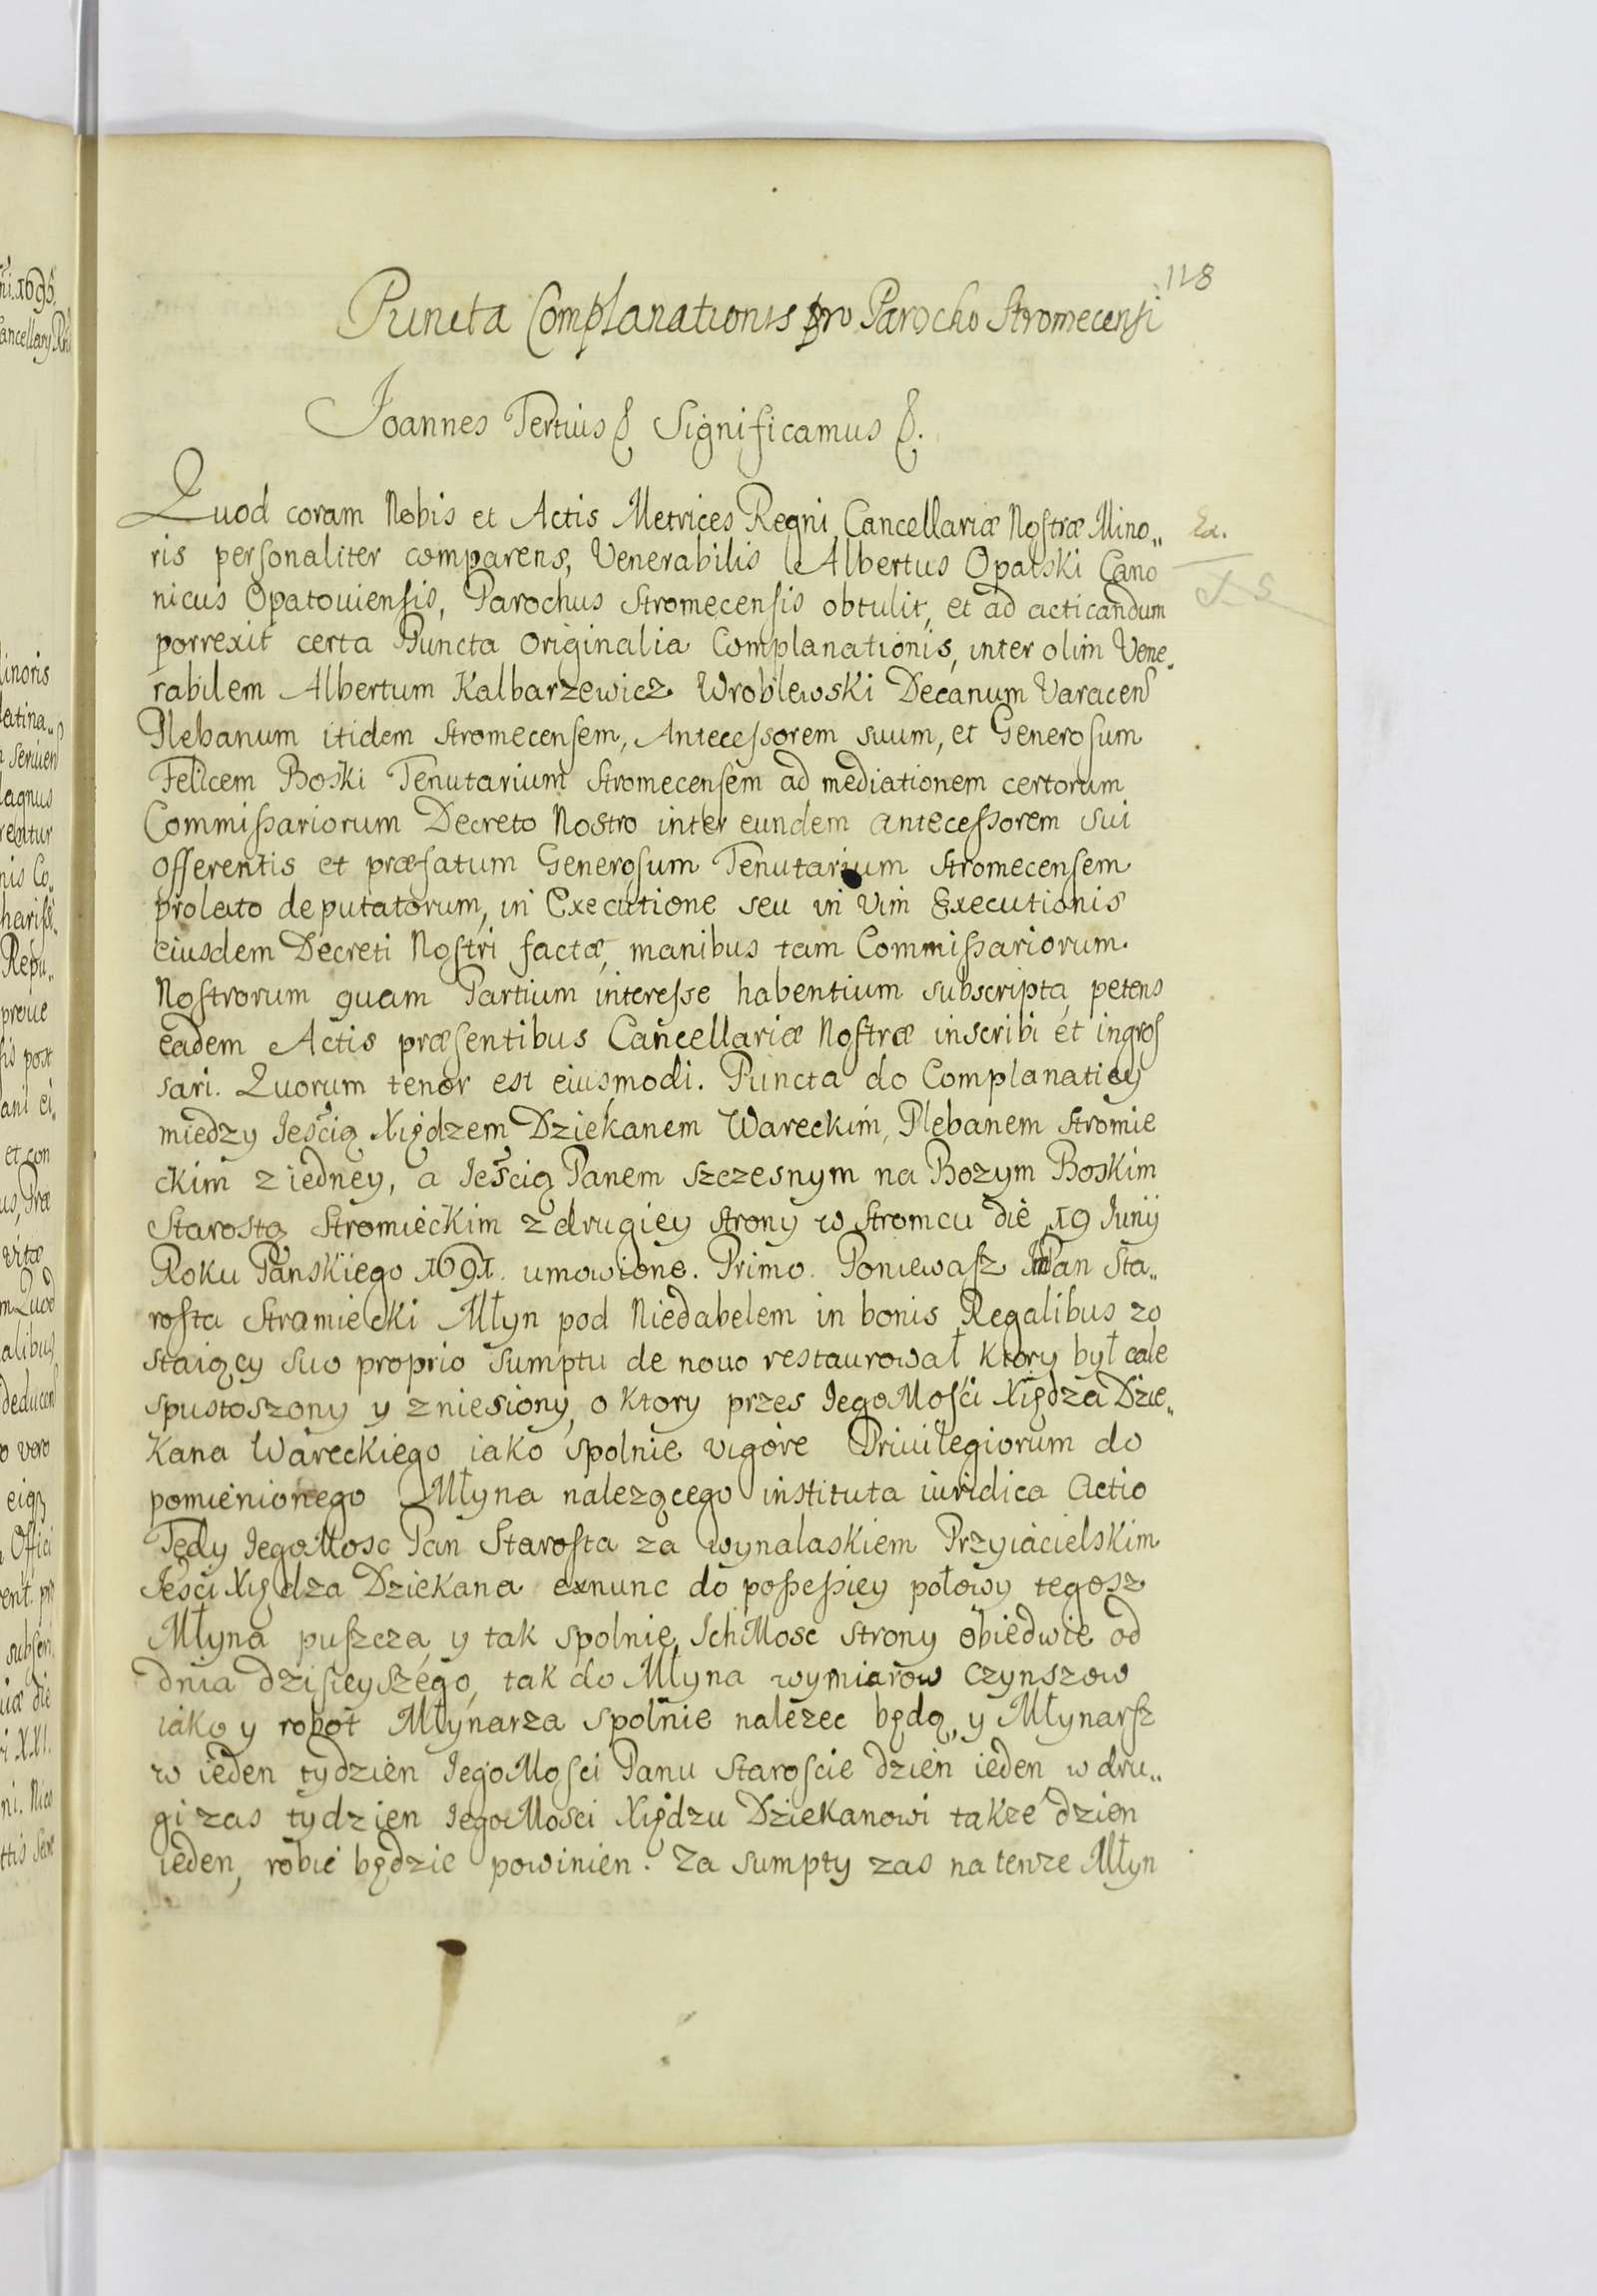 118
Puncta Complanationis pro Parocho Stromecensi
Joannes Tertius &. Significamus &.
Quod coram Nobis et Actis Metrices Regni Cancellariæ Nostræ Mino„
ris personaliter comparens, Venerabilis Albertus Opatski Cano
nicus Opatouiensis, Parochus Stromecensis obtulit, et ad acticandum
porrexit certa Puncta Originalia Complanationis, inter olim Vene„
rabilem Albertum Kalbarzewicz Wroblewski Decanum Varacens
Plebanum itidem Stromecensem, Antecessorem suum, et Generosum
Felicem Boski Tenutarium Stromecensem ad mediationem certorum
Commissariorum Decreto Nostro inter eundem antecessorem sui
offerentis et præfatum Generosum Tenutarium Stromecensem
prolato deputatorum, in Executione seu in vim Executionis
eiusdem Decreti Nostri factæ, manibus tam Commissariorum
Nostrorum quam Partium interesse habentium subscripta, petens
eadem Actis præsentibus Cancellariæ Nostræ inscribi et ingros
sari. Quorum tenor est eiusmodi. Puncta do Complanatiey
miedzy Jeścią Xiędzem Dziekanem Wareckim, Plebanem Stromie
ckim z iedney, a Jeścią Panem Szczesnym na Bozym Boskim
Starostą Stromieckim z drugiey strony w Stromcu die 19 Junij
Roku Panskiego 1691. umowione. Primo. Poniewasz JmPan Sta„
rosta Stramiecki Młyn pod Niedabelem in bonis Regalibus zo
staiący suo proprio sumptu de nouo restaurował ktory był cale
spustoszony y zniesiony, o ktory przes JegoMości Xiędza Dzie„
kana Wareckiego iako spolnie vigore Priuilegiorum do
pomienionego Młyna nalezącego instituta iuridica Actio
Tedy JegoMosc Pan Starosta za wynalaskiem Przyiacielskim
Jeści Xiędza Dziekana exnunc do possessiey połowy tegosz
Młyna puszcza, y tak spolnie JchMosc strony obiedwie od
dnia dzisieyszego, tak do Młyna wymiarow czynszow
iako y robot Młynarza spolnie nalezec będą, y Młynarsz
w ieden tydzien JegoMosci Panu Staroscie dzien ieden w dru„
gi zas tydzien JegoMosci Xiędzu Dziekanowi takze dzien
ieden, robić będzie powinien. Za sumpty zas na tenze Młyn